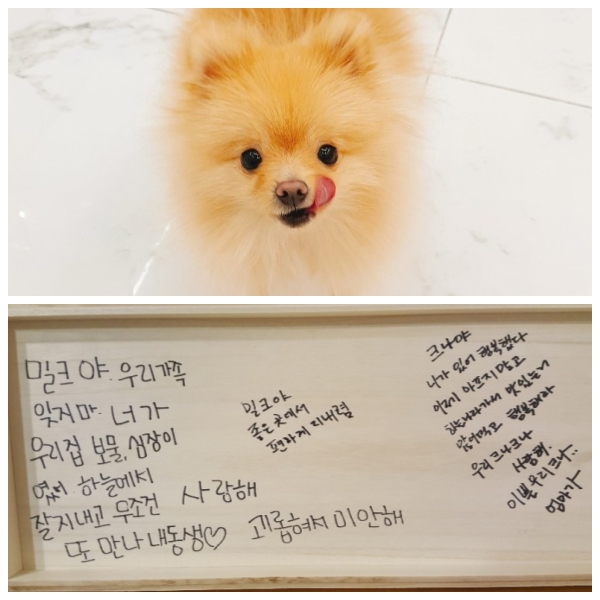 밀크야 우리가족
잊지마. 너가
우리집 보물, 심장이
였어. 하늘에서
잘지내고 무조건
또 만나 내동생♡
사랑해
괴롭혀서 미안해
밀크야
좋은곳에서
편하게 지내렴
크나야
니가 있어 행복했다
이제 아프지 말고
하늘나라가서 맛있는거
많이먹고 행복해라
우리 크나크나
사랑해.
이쁜우리크나..
엄마가